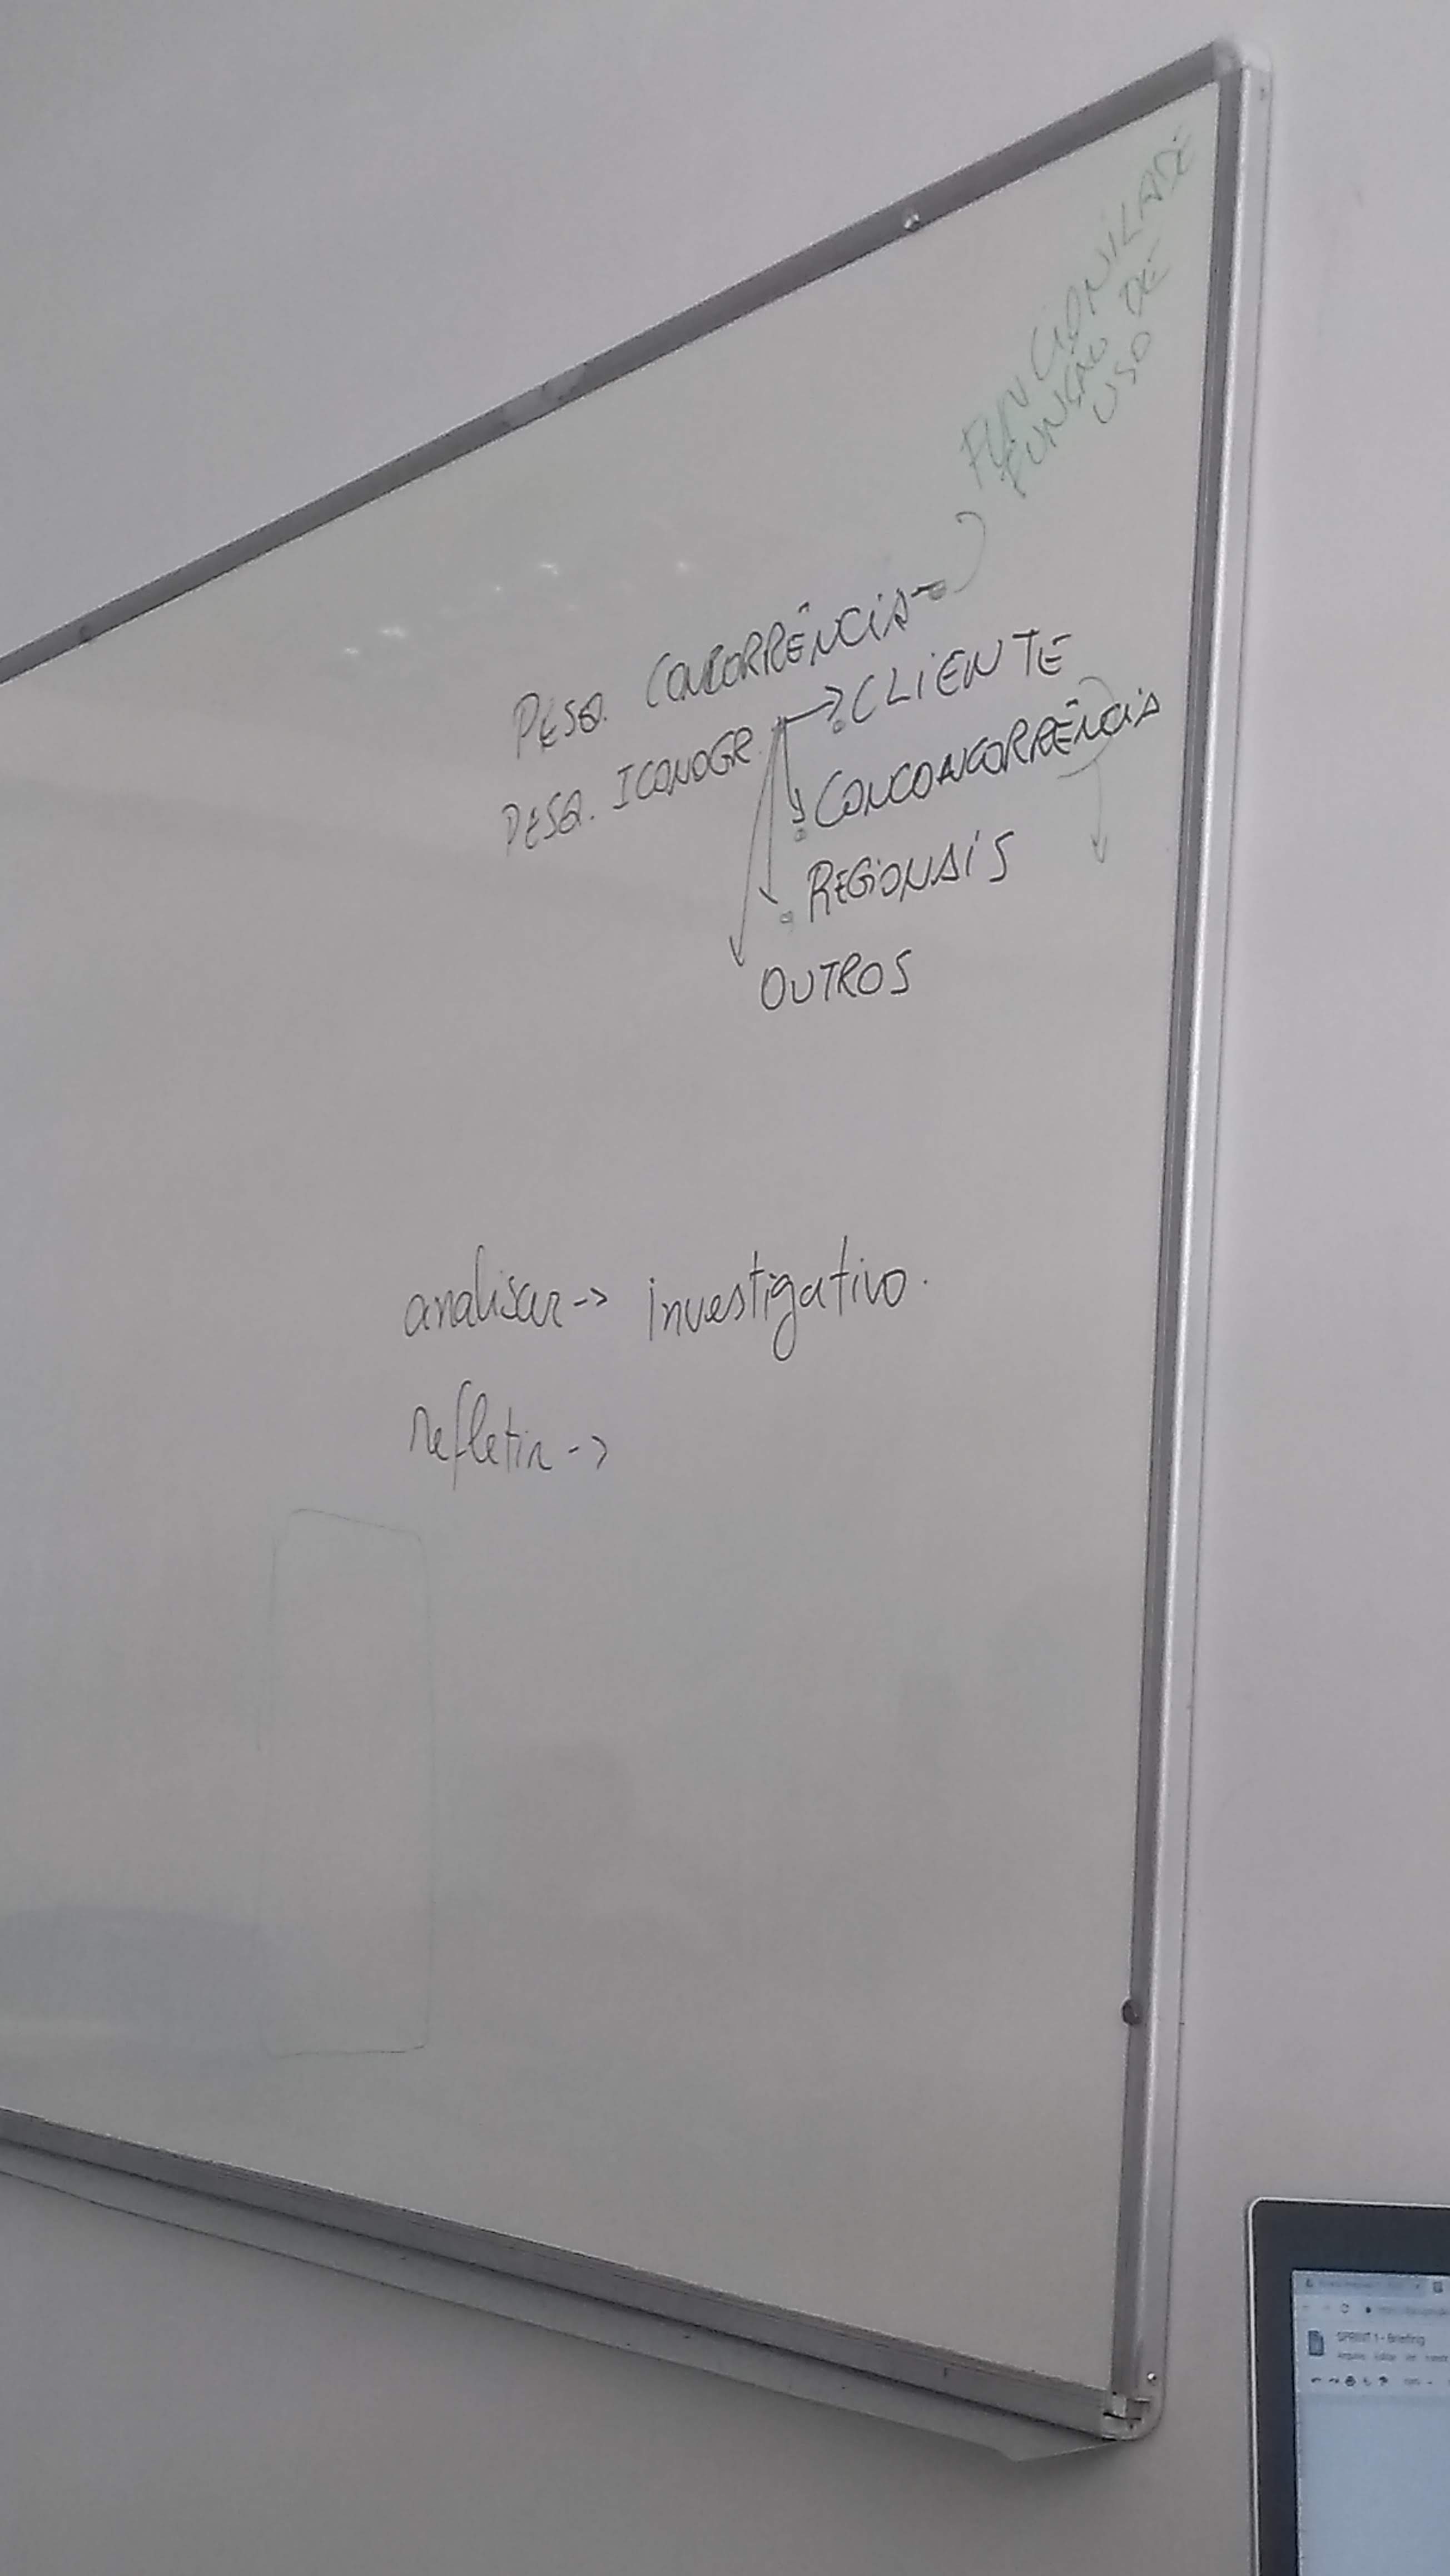 FUNCIONILADE
FUNÇÃO DE
USO
PESQ. CONCORRÊNCIA
PESQ. ICONOGR. → CLIENTE
CONCOANCORRÊNCIA
REGIONAIS
OUTROS
analisar -> investigativo.
refletir ->
SPRINT 1 - Briefing